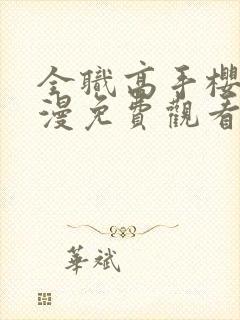 全職高手櫻
漫免費觀看
華斌